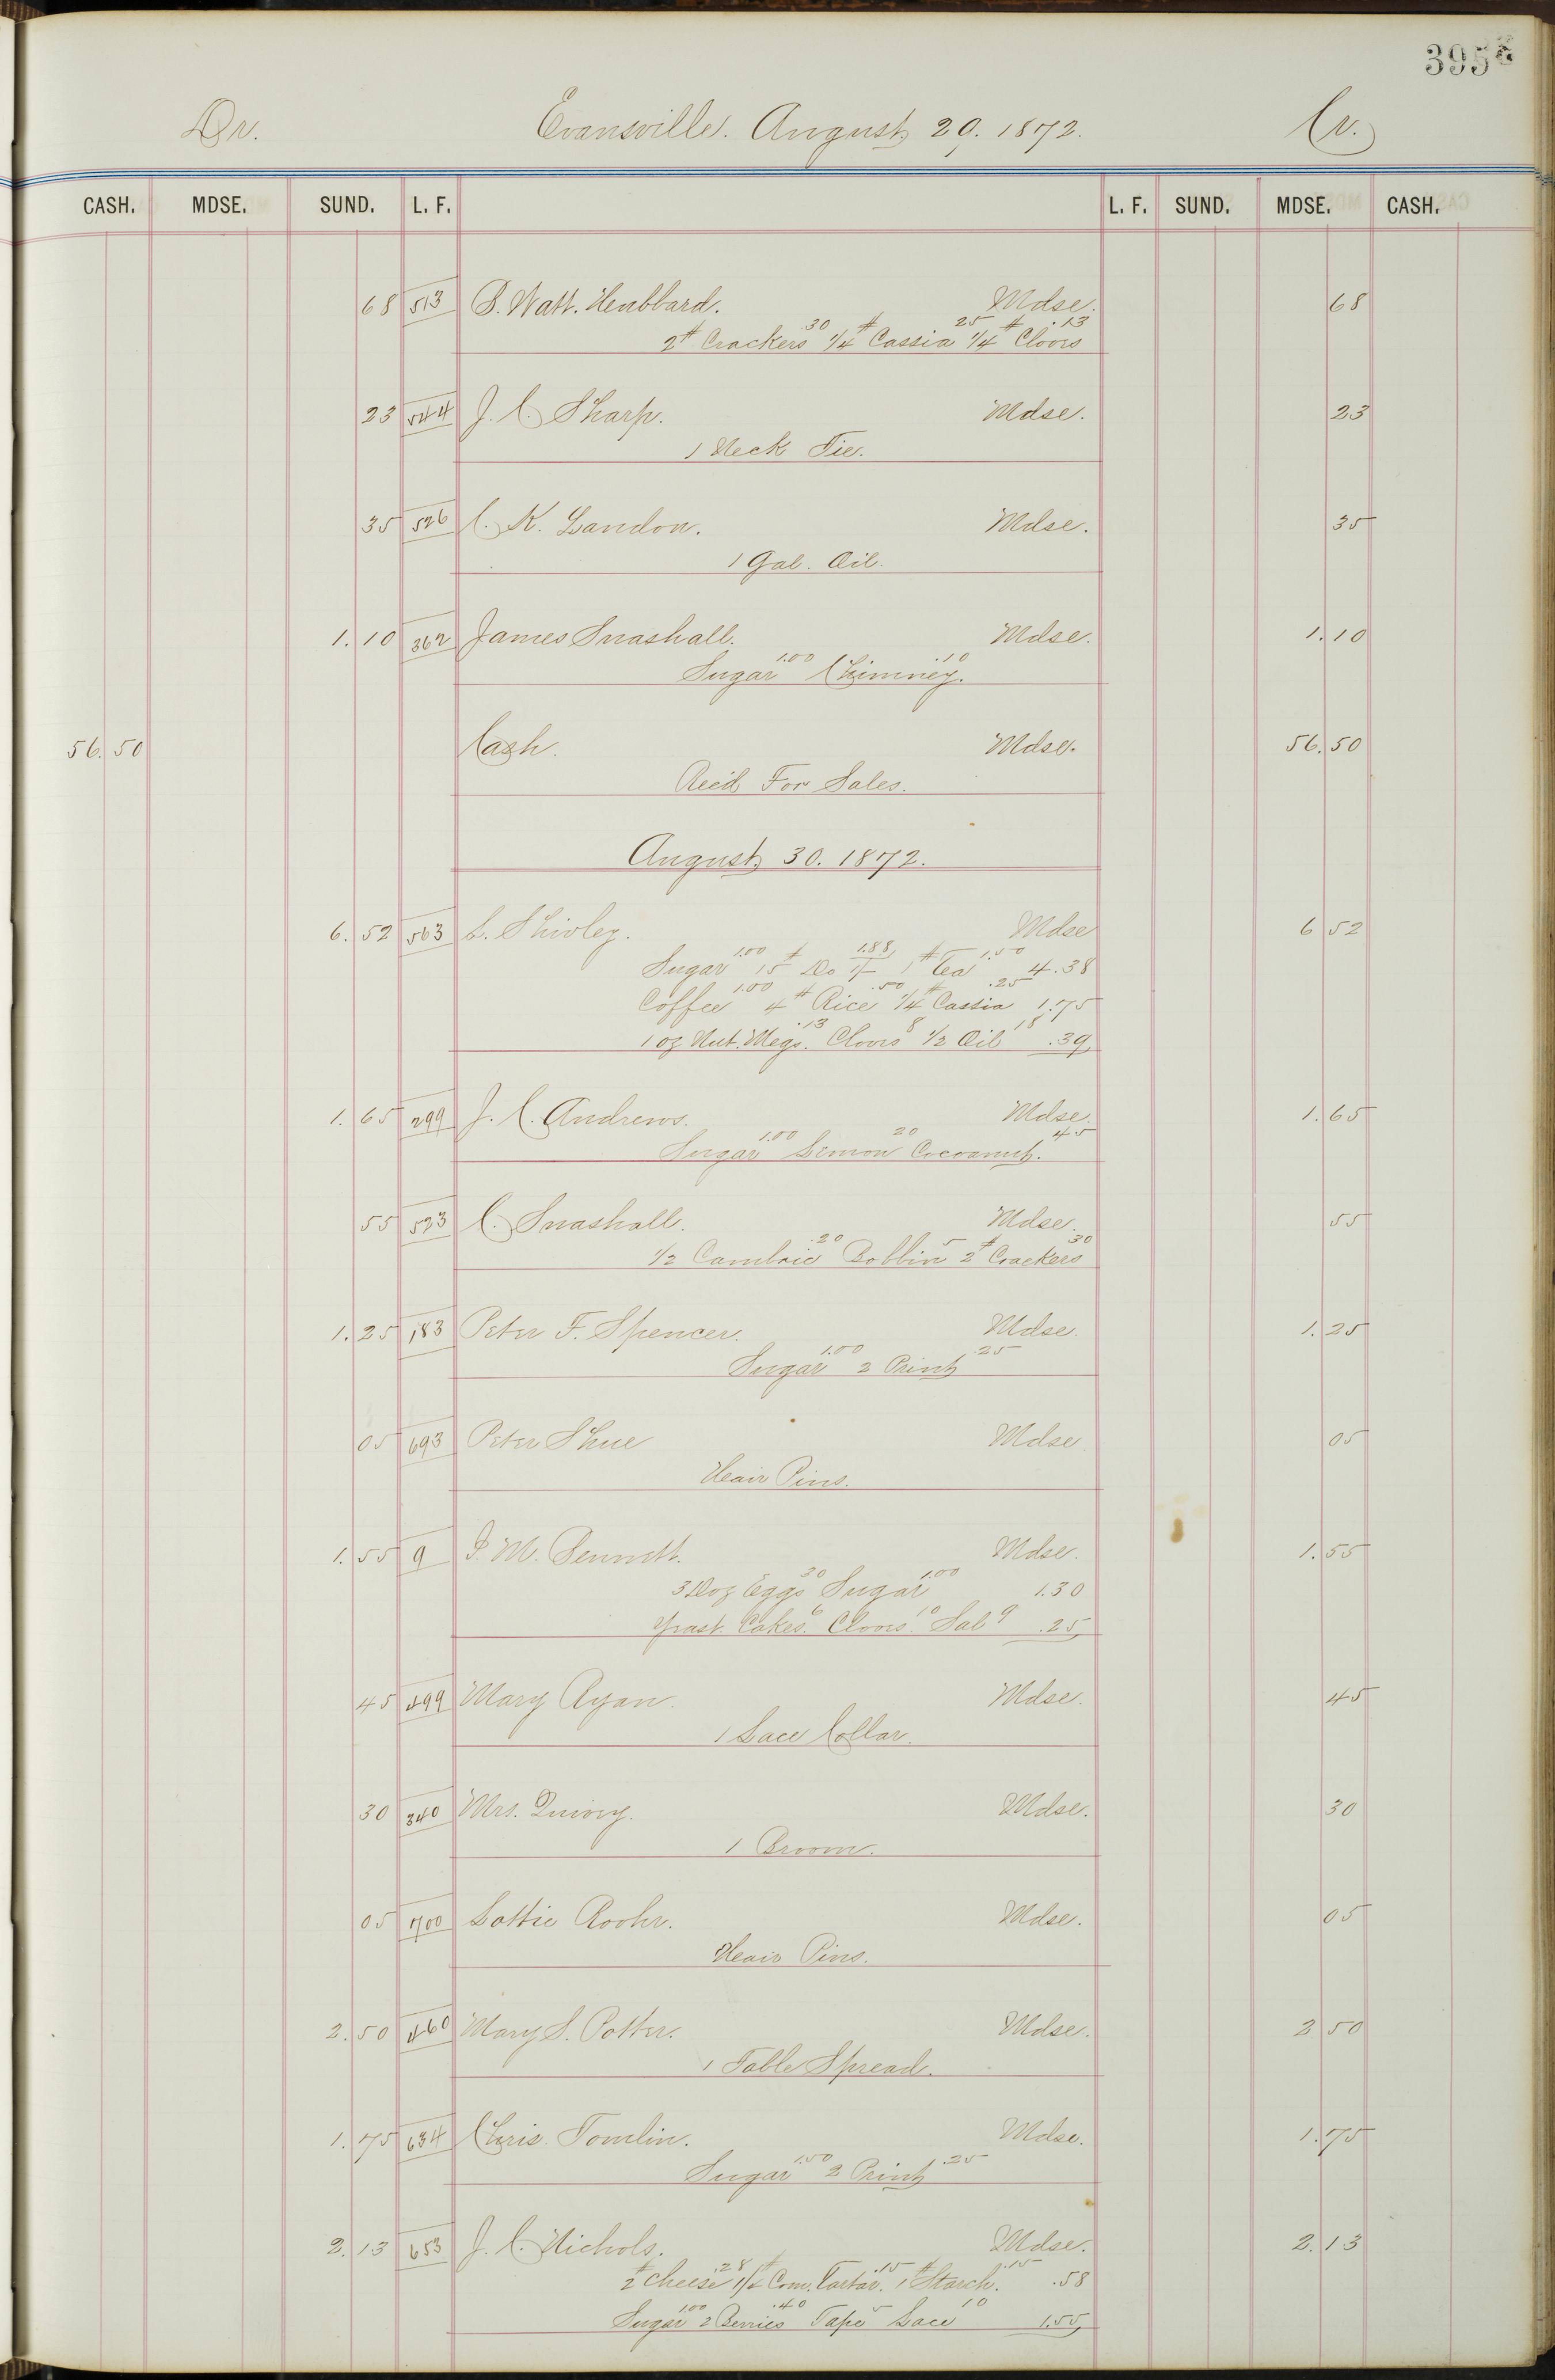 395
Dr. Evansville. August 29. 1872. Cr.
CASH. MDSE. SUND. L. F. L. F. SUND. MDSE. CASH.
68 513 B. Watt. Hubbard. Mdse. 68
2# Crackers 30 1/4# Cassia 25 1/4# Cloves .13
23 544 J. C. Sharp. Mdse. 23
1 Neck Tie.
35 526 C. K. Landon. Mdse. 35
1 Gal. Oil.
1.10 362 James Snashall. Mdse. 1.10
Sugar 1.00 Chimney. .10
56.50 Cash. Mdse. 56.50
Rec'd For Sales.
August 30. 1872.
6.52 563 L. Shivley. Mdse 6 52
Sugar 1.00 15# Do 1/- 1.88 1# Tea 1.50 4.38
Coffee 1.00 4# Rice .50 1/4# Cassia .25 1.75
1 oz Nut. Megs. .13 Cloves 8 1/2 Oil 18 .39
1.65 299 J. C. Andrews. Mdse. 1.65
Sugar 1.00 Lemon 20 Cocoanut. 45
55 523 C. Snashall. Mdse. 55
1/2 Cambric .20 Bobbin 5 2# Crackers 30
1.25 183 Peter F. Spencer. Mdse. 1.25
Sugar 1.00 2 Print .25
05 693 Peter Shue Mdse 05
Hair Pins.
1.55 9 I. M. Bennett. Mdse. 1.55
3 Doz Eggs 30 Sugar 1.00 1.30
Yeast Cakes. 6 Cloves. 10 Sal 9 .25
45 499 Mary Ryan. Mdse. 45
1 Lace Collar.
30 340 Mrs. Quivey. Mdse. 30
1 Broom.
05 700 Lottie Roohr. Mdse. 05
Hair Pins.
2.50 460 Mary S. Potter. Mdse. 2 50
1 Table Spread.
1.75 634 Chris Tomlin. Mdse. 1.75
Sugar 1.50 2 Print .25
2.13 653 J. C. Nichols. Mdse. 2.13
2# Cheese .28 1/4# Crm. Tartar. .15 1# Starch. .15 .58
Sugar 1.00 2 Berries .40 Tape 5 Lace 10 1.55